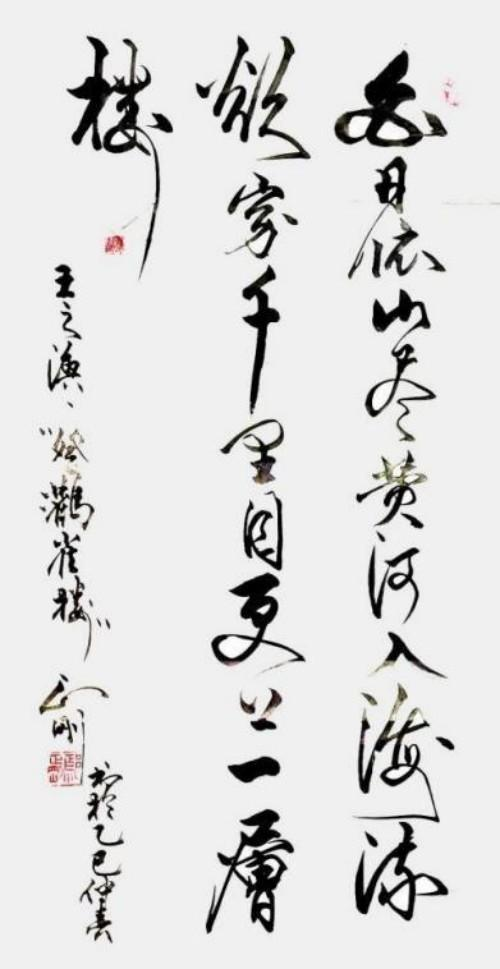 白日依山尽黄河入海流
欲穷千里目更上一層
楼
王之涣、"登鸛雀楼"
刚
书於乙巳仲春